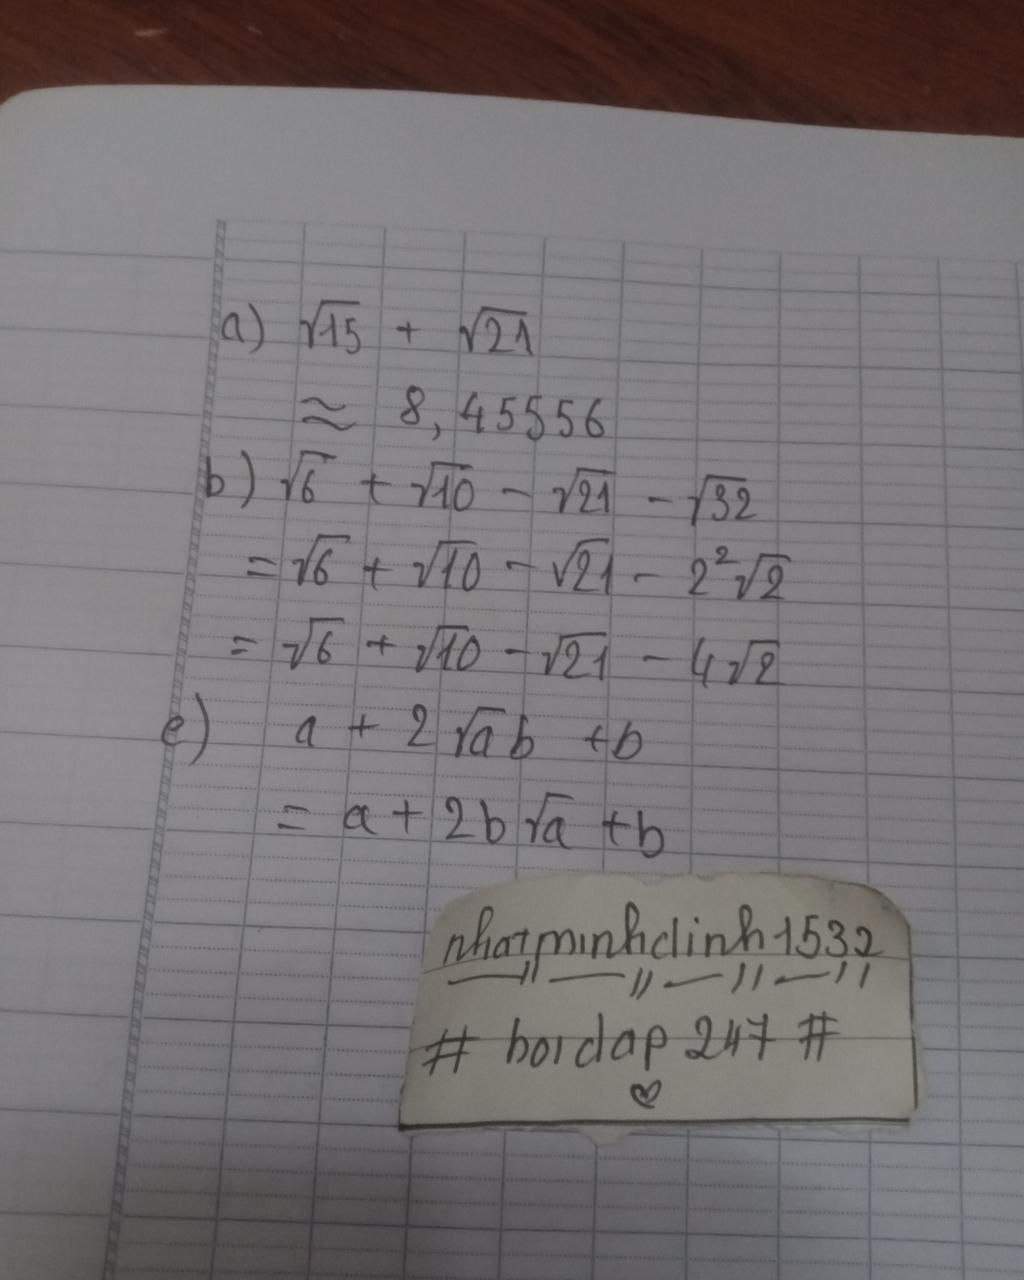 a) √15 + √21
≈ 8,45556
b) √6 + √10 - √21 - √32
= √6 + √10 - √21 - 2²√2
= √6 + √10 - √21 - 4√2
e) a + 2√a b + b
= a + 2b√a + b
nhatminhdinh1532
# hoidap 247 #